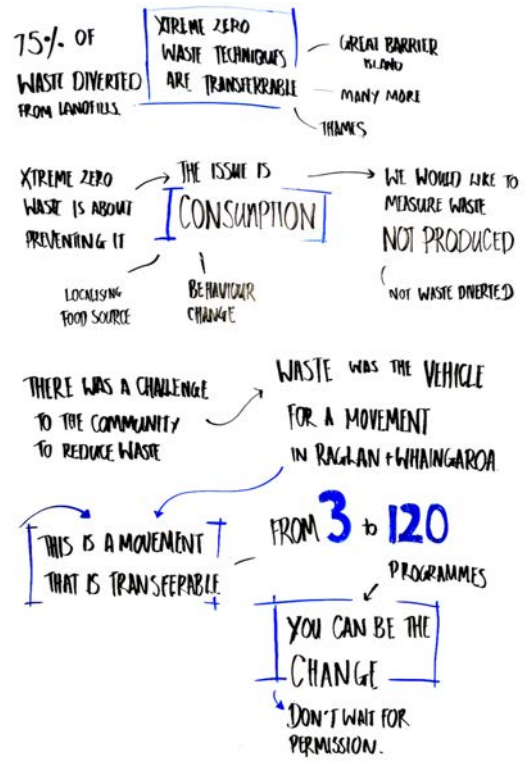 75% OF
WASTE DIVERTED
FROM LANDFILLS.
XTREME ZERO
WASTE TECHNIQUES
ARE TRANSFERRABLE
GREAT BARRIER
ISLAND
MANY MORE
THAMES
XTREME ZERO
WASTE IS ABOUT
PREVENTING IT
THE ISSUE IS
CONSUMPTION
LOCALISING
FOOD SOURCE
BEHAVIOUR
CHANGE
WE WOULD LIKE TO
MEASURE WASTE
NOT PRODUCED
NOT WASTE DIVERTED
THERE WAS A CHALLENGE
TO THE COMMUNITY
TO REDUCE WASTE
WASTE WAS THE VEHICLE
FOR A MOVEMENT
IN RAGLAN + WHAINGAROA
THIS IS A MOVEMENT
THAT IS TRANSFERABLE
FROM 3 to 120
PROGRAMMES
YOU CAN BE THE
CHANGE
DON'T WAIT FOR
PERMISSION.